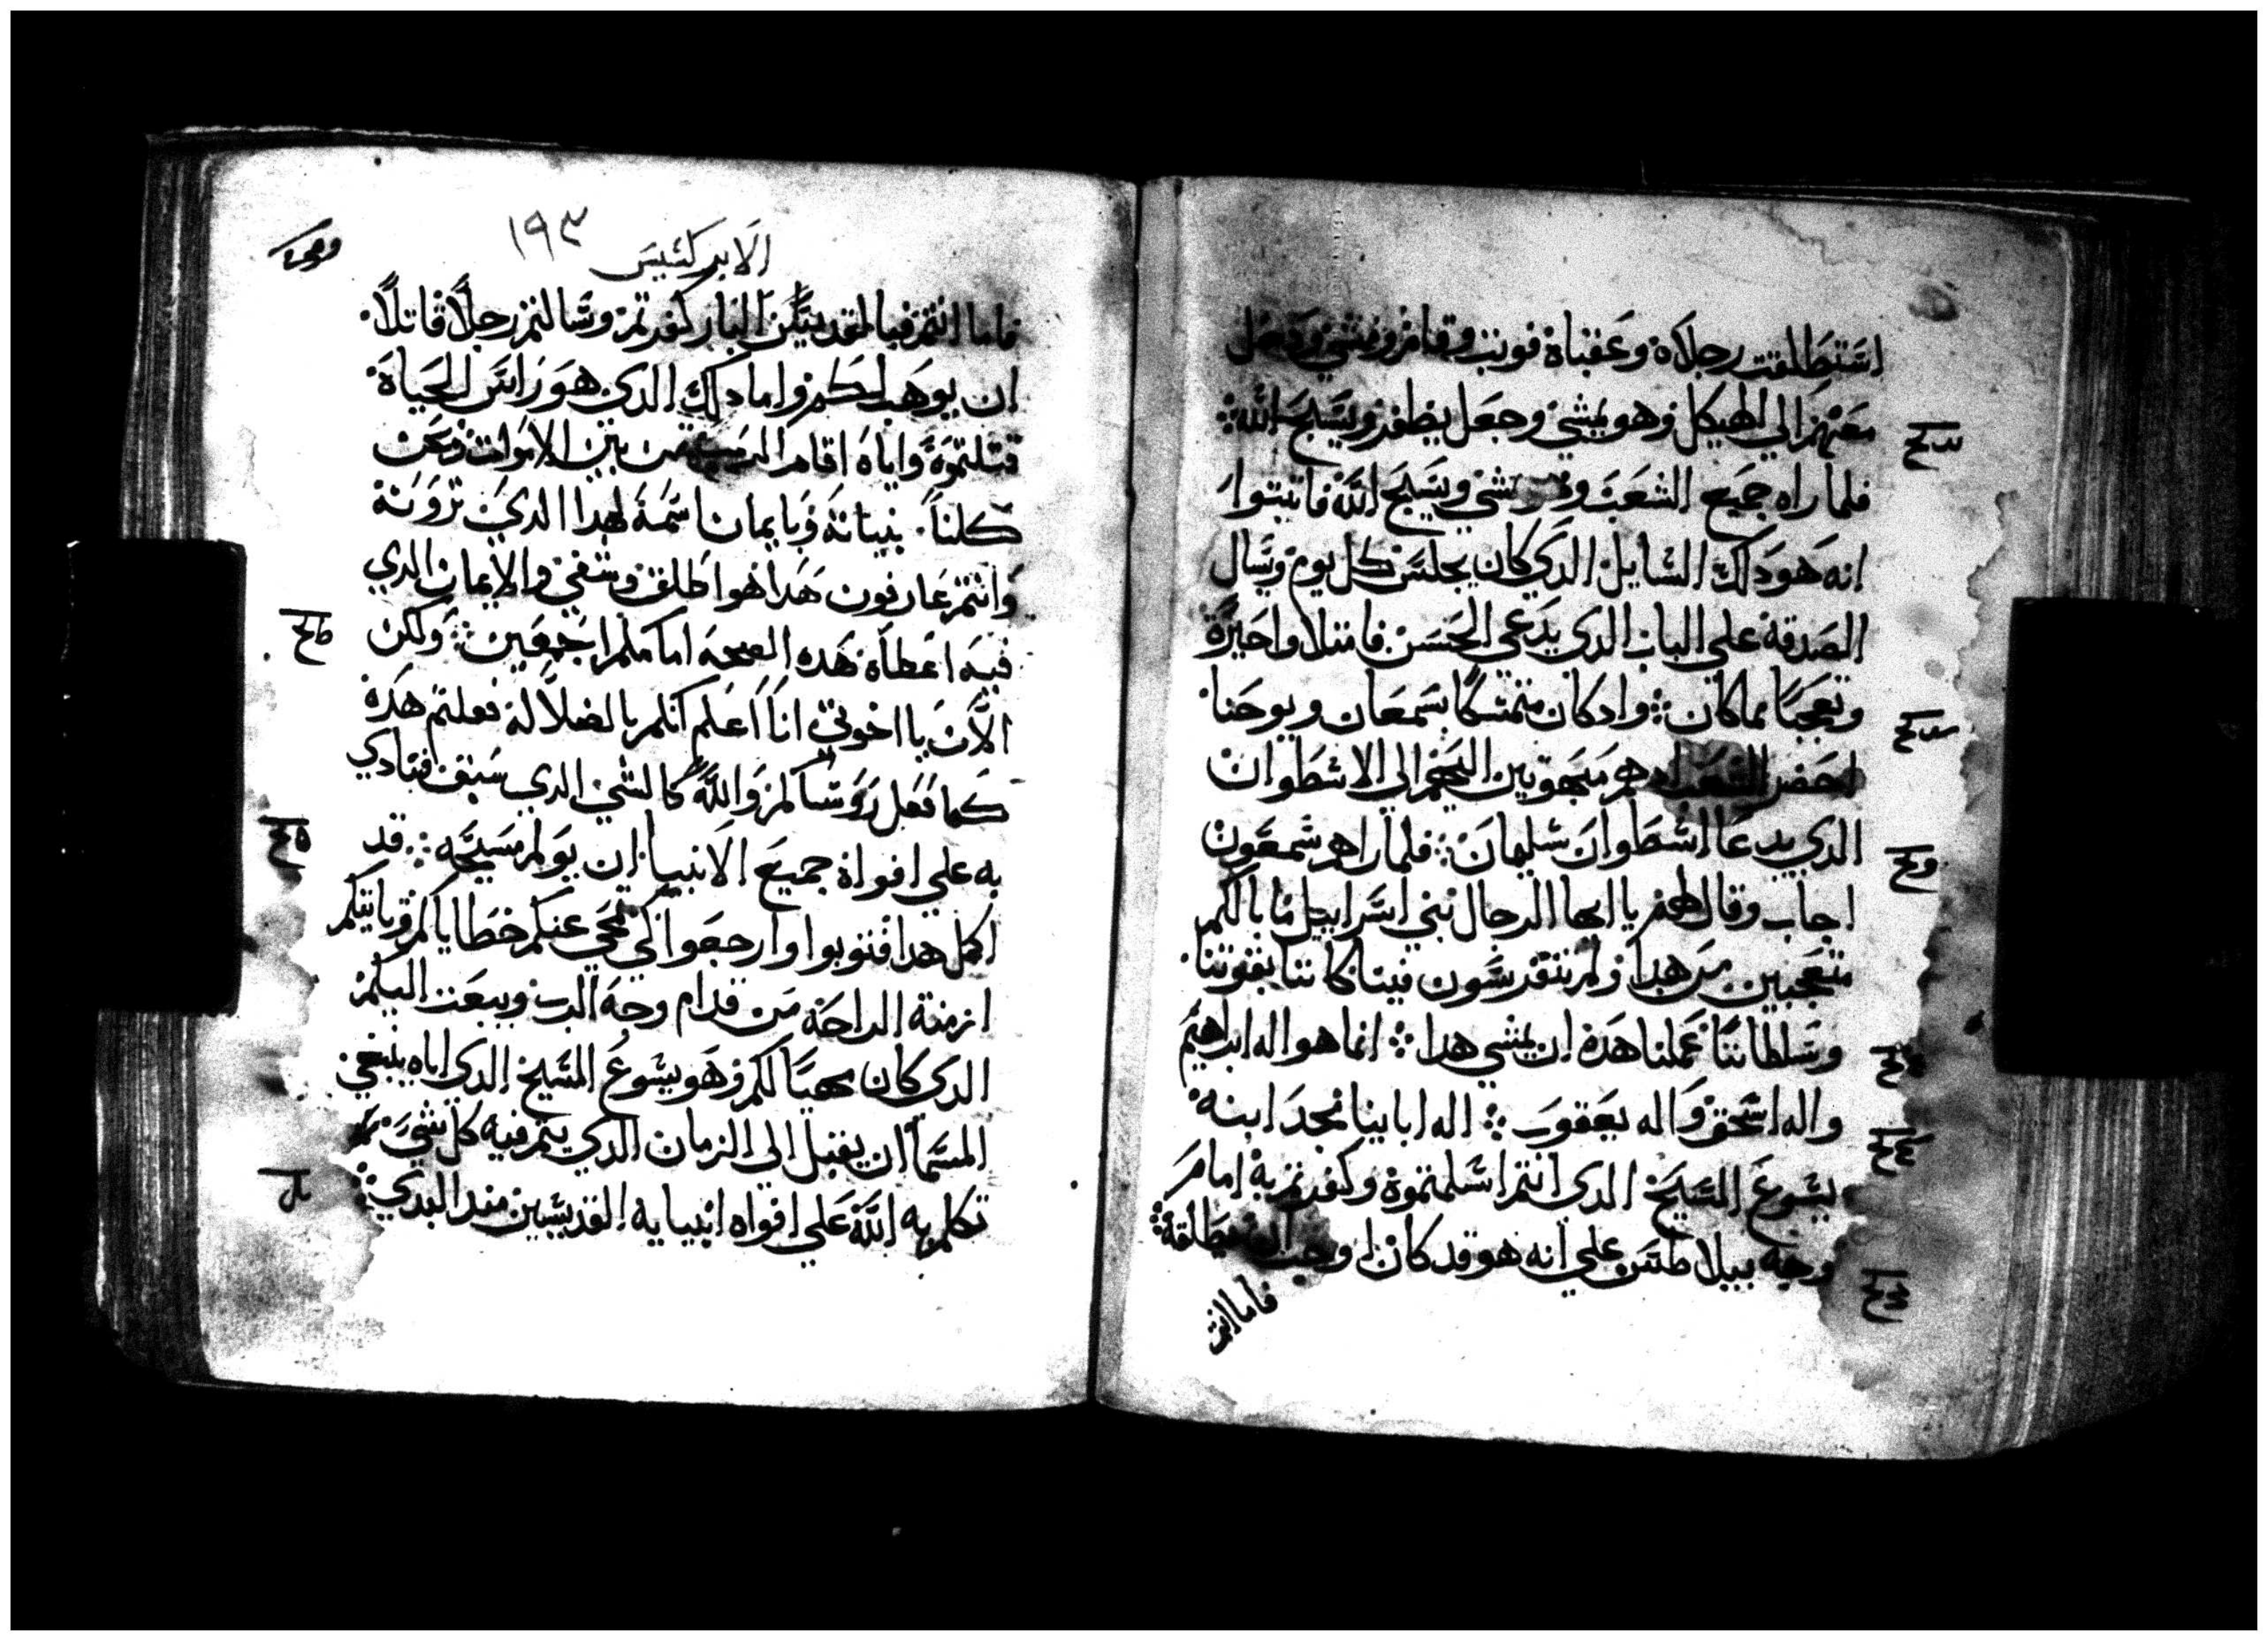 استطلقت رجلاه وعقباه فوتب وقام ومشي ودخل
معهم الي الهيكل وهو يمشي وجعل يطفر ويسبح الله
فلما راه جميع الشعب يمشي ويسبح الله فاتبتوا
انه هو دلك السايل الدي كان يجلس كل يوم ويسال
الصدقة علي الباب الدي يدعي الحسن فامتلاوا حيرة
وتعجبا مما كان وادكان متمسكا بسمعان ويوحنا
احضر الشعب وهم مبهوتين اليهم الي الاسطوان
الدي يدعا اسطوان سليمان فلما راهم شمعون
اجاب وقال لهم يا ايها الرجال بني اسراييل ما بالكم
متعجبين من هدا ولم تتفرسون فينا كاننا بقوتنا
وسلطاننا عملنا هده ان يمشي هدا انما هو اله ابراهيم
واله اسحق واله يعقوب اله ابابينا مجد ابنه
يسوع المسيح الدي انتم اسلمتموه وكفرتم به امام
وجه بيلاطس علي انه هو قد كان اوجب يطلقه
فاما انتم
الابركسيس
١٩٣
فاما انتم فبالقديس البار كفرتم وسالتم رجلا قاتلا
ان يوهب لكم واما دلك الدي هو راس الحياة
قتلتموه واياه اقام الرب من بين الاموات ونحن
كلنا بنياته وبايمان اسمه لهدا الدي ترونه
وانتم عارفون هدا هو اطلق وشفي والايمان الدي
فيه اعطاه هده الصحة امامكم اجمعين ولكن
الان يا اخوتي انا اعلم انكم بالضلالة فعلتم هده
كما فعل روساكم والله كالشي الدي سبق فنادي
به علي افواه جميع الانبيا ان يولم مسيحه قد
اكمل هدا فتوبوا وارجعوا لكي تمحي عنكم خطاياكم وياتيكم
ازمنة الراحة من قدام وجه الرب ويبعت اليكم
الدي كان مهيا لكم وهو يسوع المسيح الدي اياه ينبغي
السما ان يقبل الي الزمان الدي يتم فيه كل شي
تكلم به الله علي افواه انبيايه القديسين مند البدي